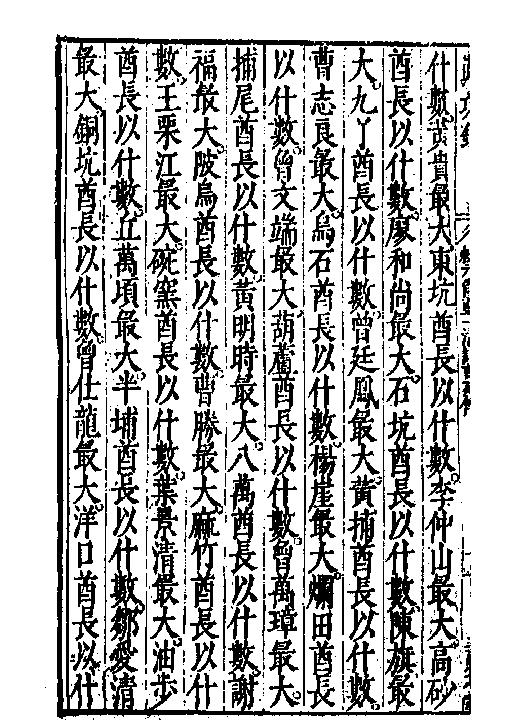 什數黃貴最大東坑酋長以什數李仲山最大高砂
酋長以什數廖和尚最大石坑酋長以什數陳旗最
大九丫酋長以什數曾廷鳳最大黃捕酋長以什數
曹志良最大烏石酋長以什數楊崖最大爛田酋長
以什數曾文端最大葫蘆酋長以什數曾萬璋最大
捕尾酋長以什數黃明時最大八萬酋長以什數謝
福最大陂烏酋長以什數曹勝最大麻竹酋長以什
數王栗江最大碗窯酋長以什數葉景清最大油步
酋長以什數丘萬頃最大半埔酋長以什數鄒愛清
最大銅坑酋長以什數曾仕龍最大洋口酋長以什